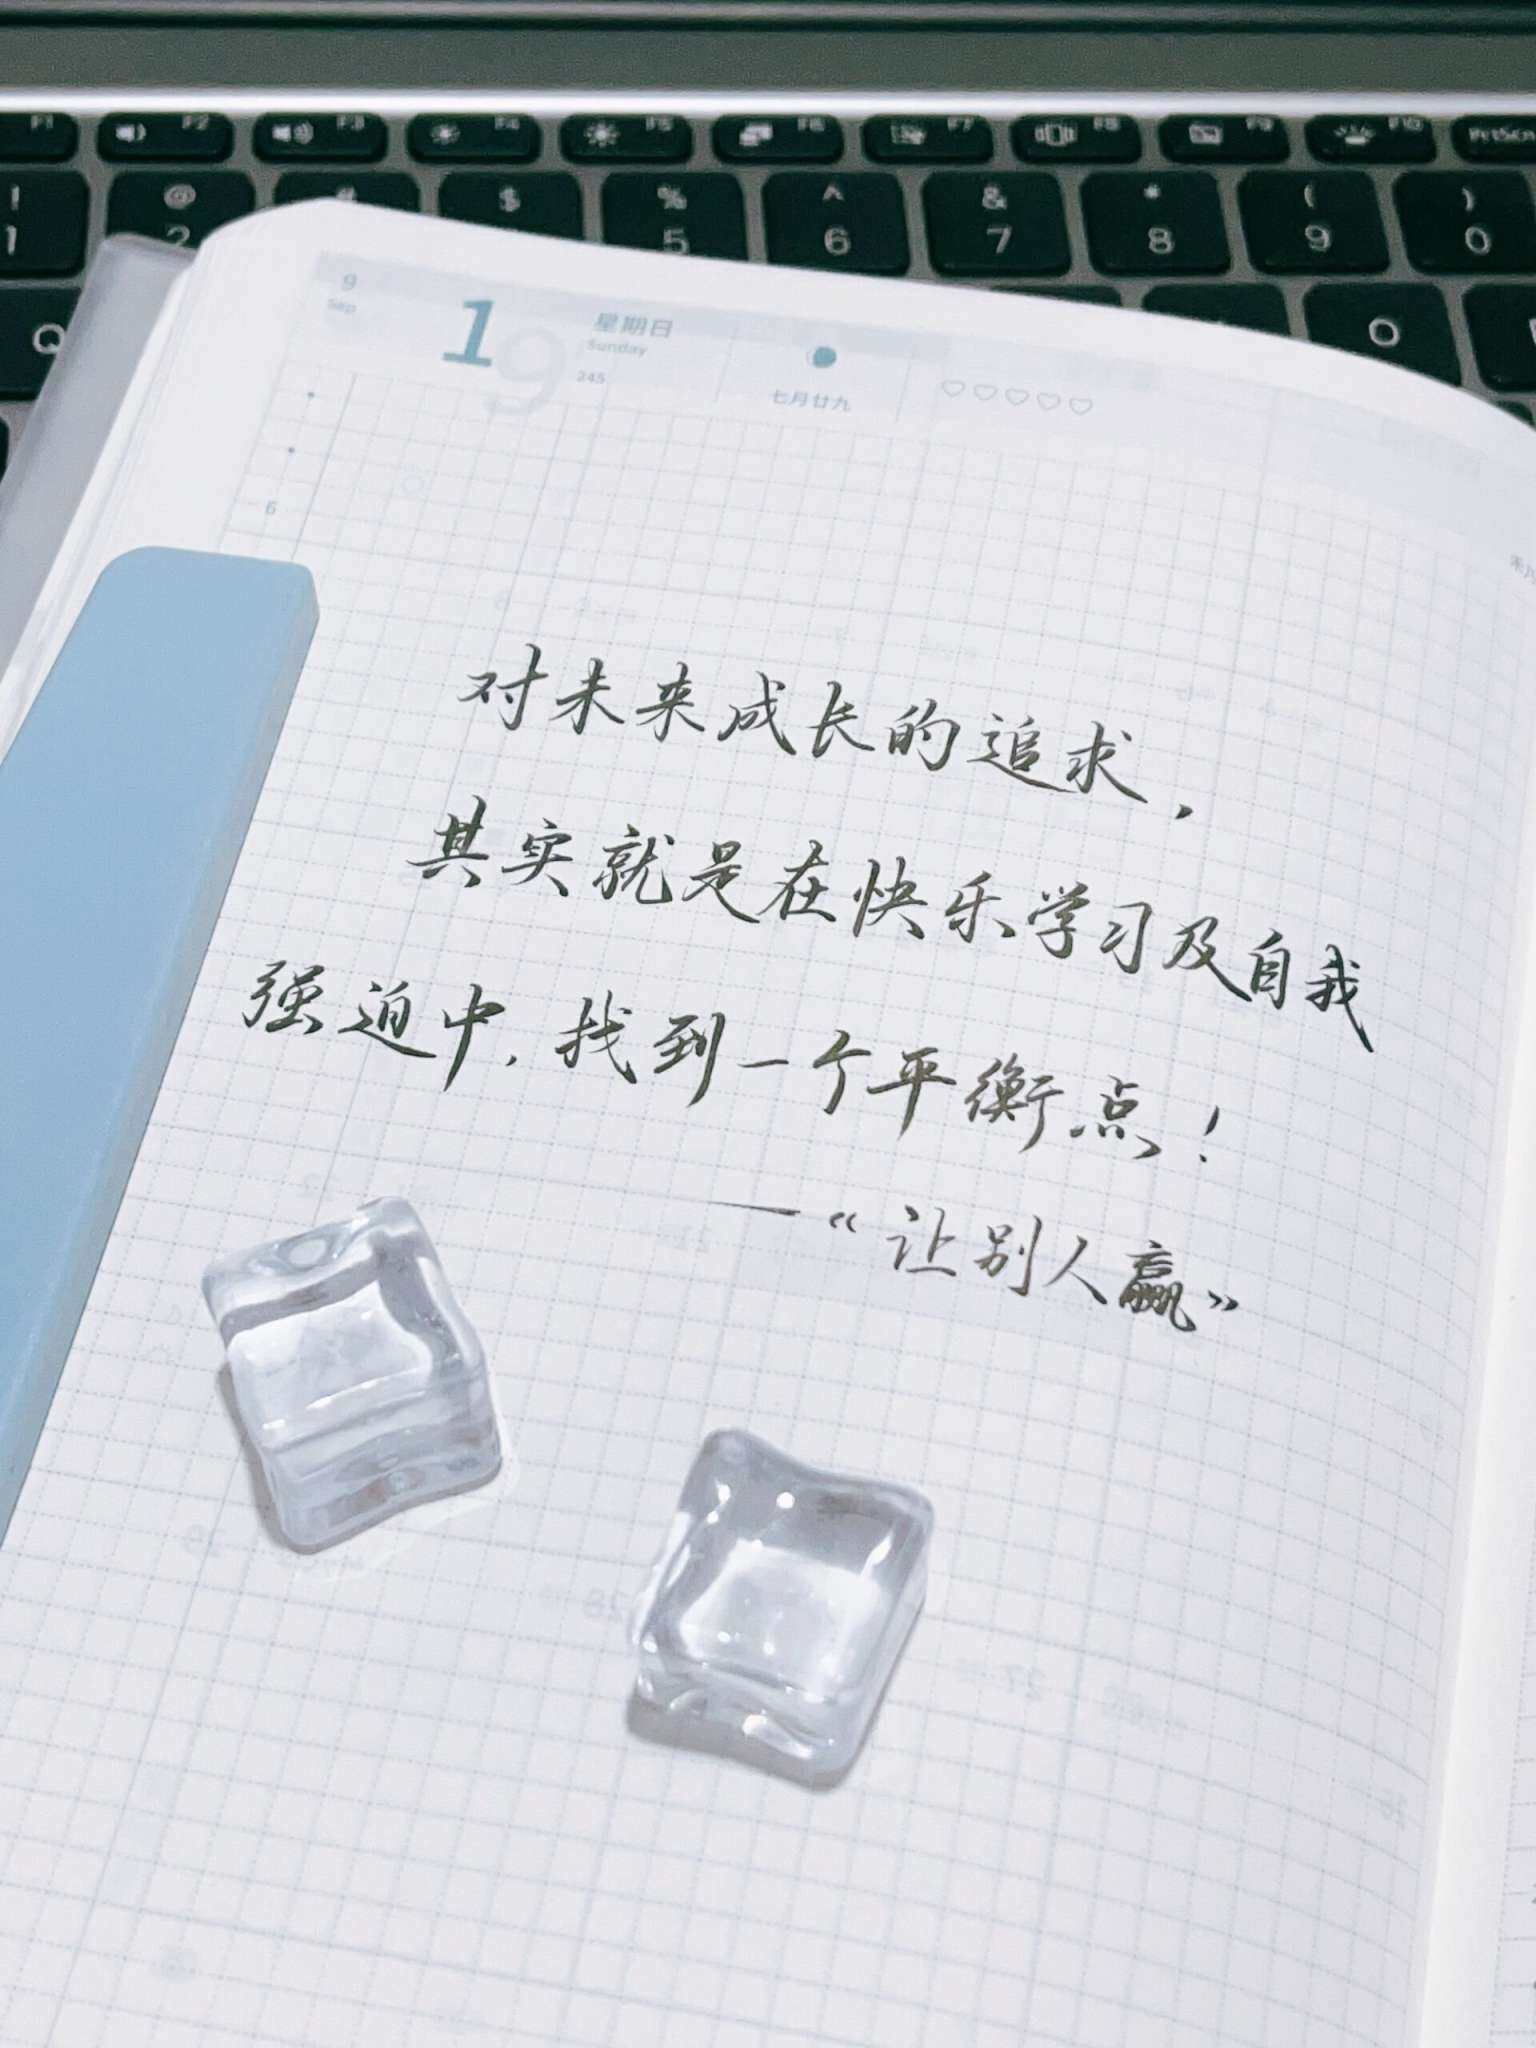 F1 F2 F3 F4 F5 F6 F7 F8 F9 F10 PrtScn
! @ # $ % ^ & * ( )
1 2 5 6 7 8 9 0
Q O
9 19 星期日
Sep Sunday
245
七月廿九
6
对未来成长的追求，
其实就是在快乐学习及自我
强迫中，找到一个平衡点！
——《让别人赢》